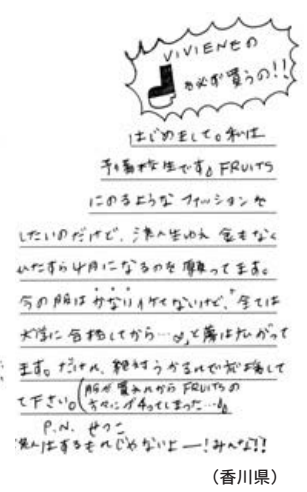 VIVIENの
を必ず買うの!!
はじめまして。私は
予備校生です。FRUiTS
にのるような ファッションを
したいのだけど、浪人生ゆえ 金もなく
ひたすら4月になるのを 願ってます。
今の服は かなりイケてないけど、"全ては
大学に合格してから…"と夢は広がって
ます。だけん、絶対うかるんで応援して
て下さい。(服が買えんから FRUiTSの
P.N. せつこ
浪人はするもんじゃないよー!みんな!!
(香川県)